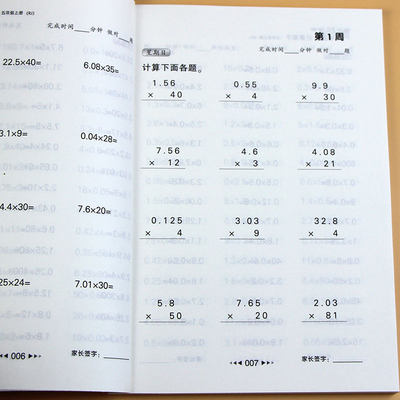 五年级上册 (RJ)
完成时间____分钟 做对____题
22.5×40= 6.08×35=
3.1×9= 0.04×28=
4.4×30= 7.6×20=
25×24= 7.01×30=
006 家长签字:______
第1周
星期日
完成时间____分钟 做对____题
计算下面各题。
1.56 0.55 9.9
× 40 × 4 × 30
7.56 4.6 4.08
× 12 × 3 × 21
0.125 3.03 32.8
× 4 × 9 × 4
5.8 7.65 2.03
× 50 × 20 × 81
007 家长签字:______